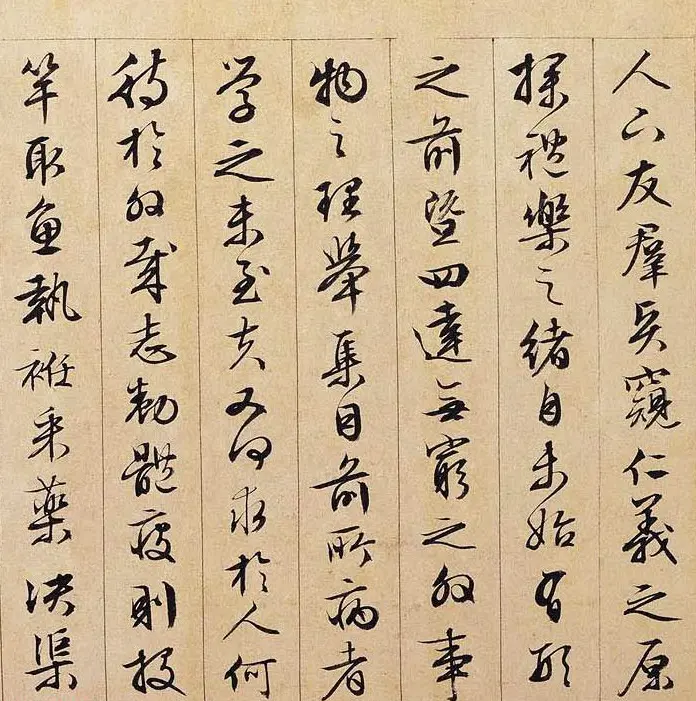 人下友羣賢窺仁義之原
探禮樂之緒自未始有形
之前暨四達無窮之外事
物之理舉集目前所病者
學之未至夫又何求於人何
待於外哉志勌體疲則投
竿取魚執衽采藥決渠